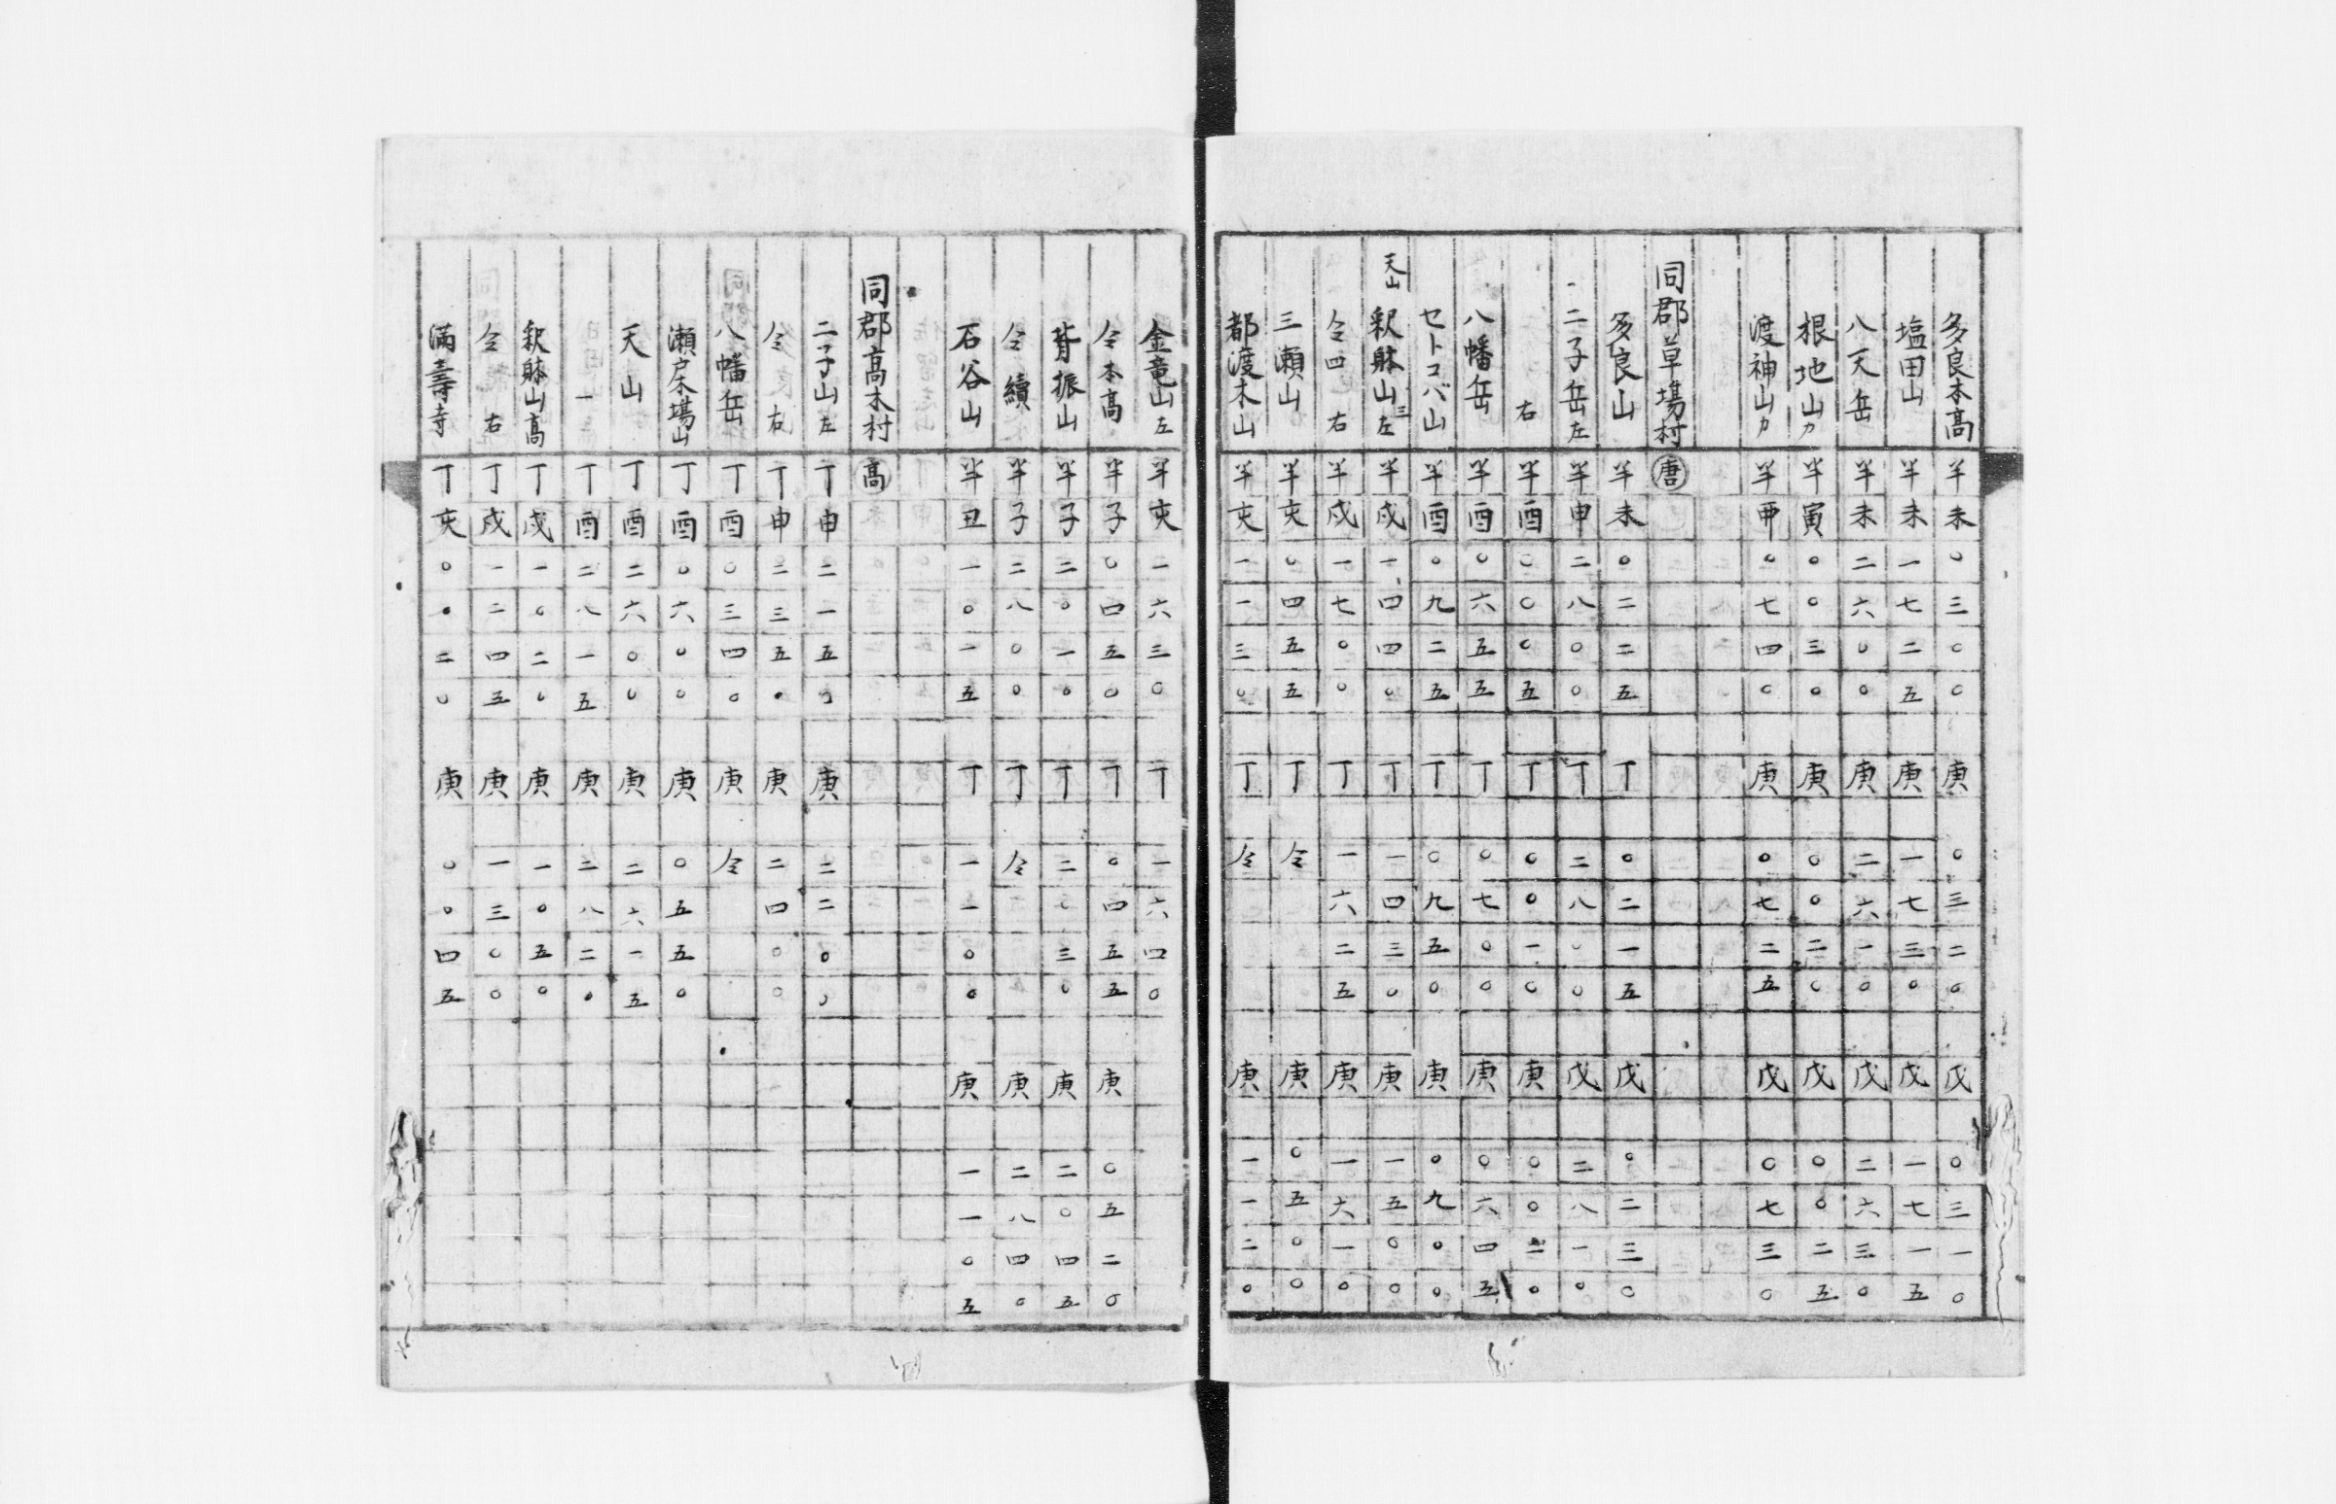 多良本高 半未 〇三〇〇 庚 〇三二〇 戊 〇三一〇
塩田山 半未 一七二五 庚 一七三〇 戊 一七一五
八天岳 半未 二六〇〇 庚 二六一〇 戊 二六三〇
根地山カ 半寅 〇〇三〇 庚 〇〇二〇 戊 〇〇二五
渡神山カ 半 〇七四〇 庚 〇七二五 戊 〇七三〇
同郡草場村 唐
多良山 半未 〇二二五 丁 〇二一五 戊 〇二三〇
二子岳左 半申 二八〇〇 丁 二八〇〇 戊 二八一〇
右 半酉 〇〇〇五 丁 〇〇一〇 庚 〇〇二〇
八幡岳 半酉 〇六五五 丁 〇七〇〇 庚 〇六四五
セトコバ山 半酉 〇九二五 丁 〇九五〇 庚 〇九〇〇
天山 釈躰山三左 半戌 一四四〇 丁 一四三〇 庚 一五〇〇
仝四 右 半戌 一七〇〇 丁 一六二五 庚 一六一〇
三瀬山 半亥 〇四五五 丁 仝 庚 〇五〇〇
都渡木山 半亥 一一三〇 丁 仝 庚 一一二〇
金竜山左 半亥 一六三〇 丁 一六四〇
仝本高 半子 〇四五〇 丁 〇四五五 庚 〇五二〇
脊振山 半子 二〇一〇 丁 二〇三〇 庚 二〇四五
仝續 半子 二八〇〇 丁 仝 庚 二八四〇
石谷山 半丑 一〇一五 丁 一一〇〇 庚 一一〇五
同郡高木村 高
二子山左 丁申 二一五〇 庚 二二〇〇
仝 右 丁申 二三五〇 庚 二四〇〇
八幡岳 丁酉 〇三四〇 庚 仝
瀬戸木場山 丁酉 〇六〇〇 庚 〇五五〇
天山 丁酉 二六〇〇 庚 二六一五
一 丁酉 二八一五 庚 二八二〇
釈躰山高 丁戌 一〇二〇 庚 一〇五〇
仝 右 丁戌 一二四五 庚 一三〇〇
満壽寺 丁亥 〇〇二〇 庚 〇〇四五